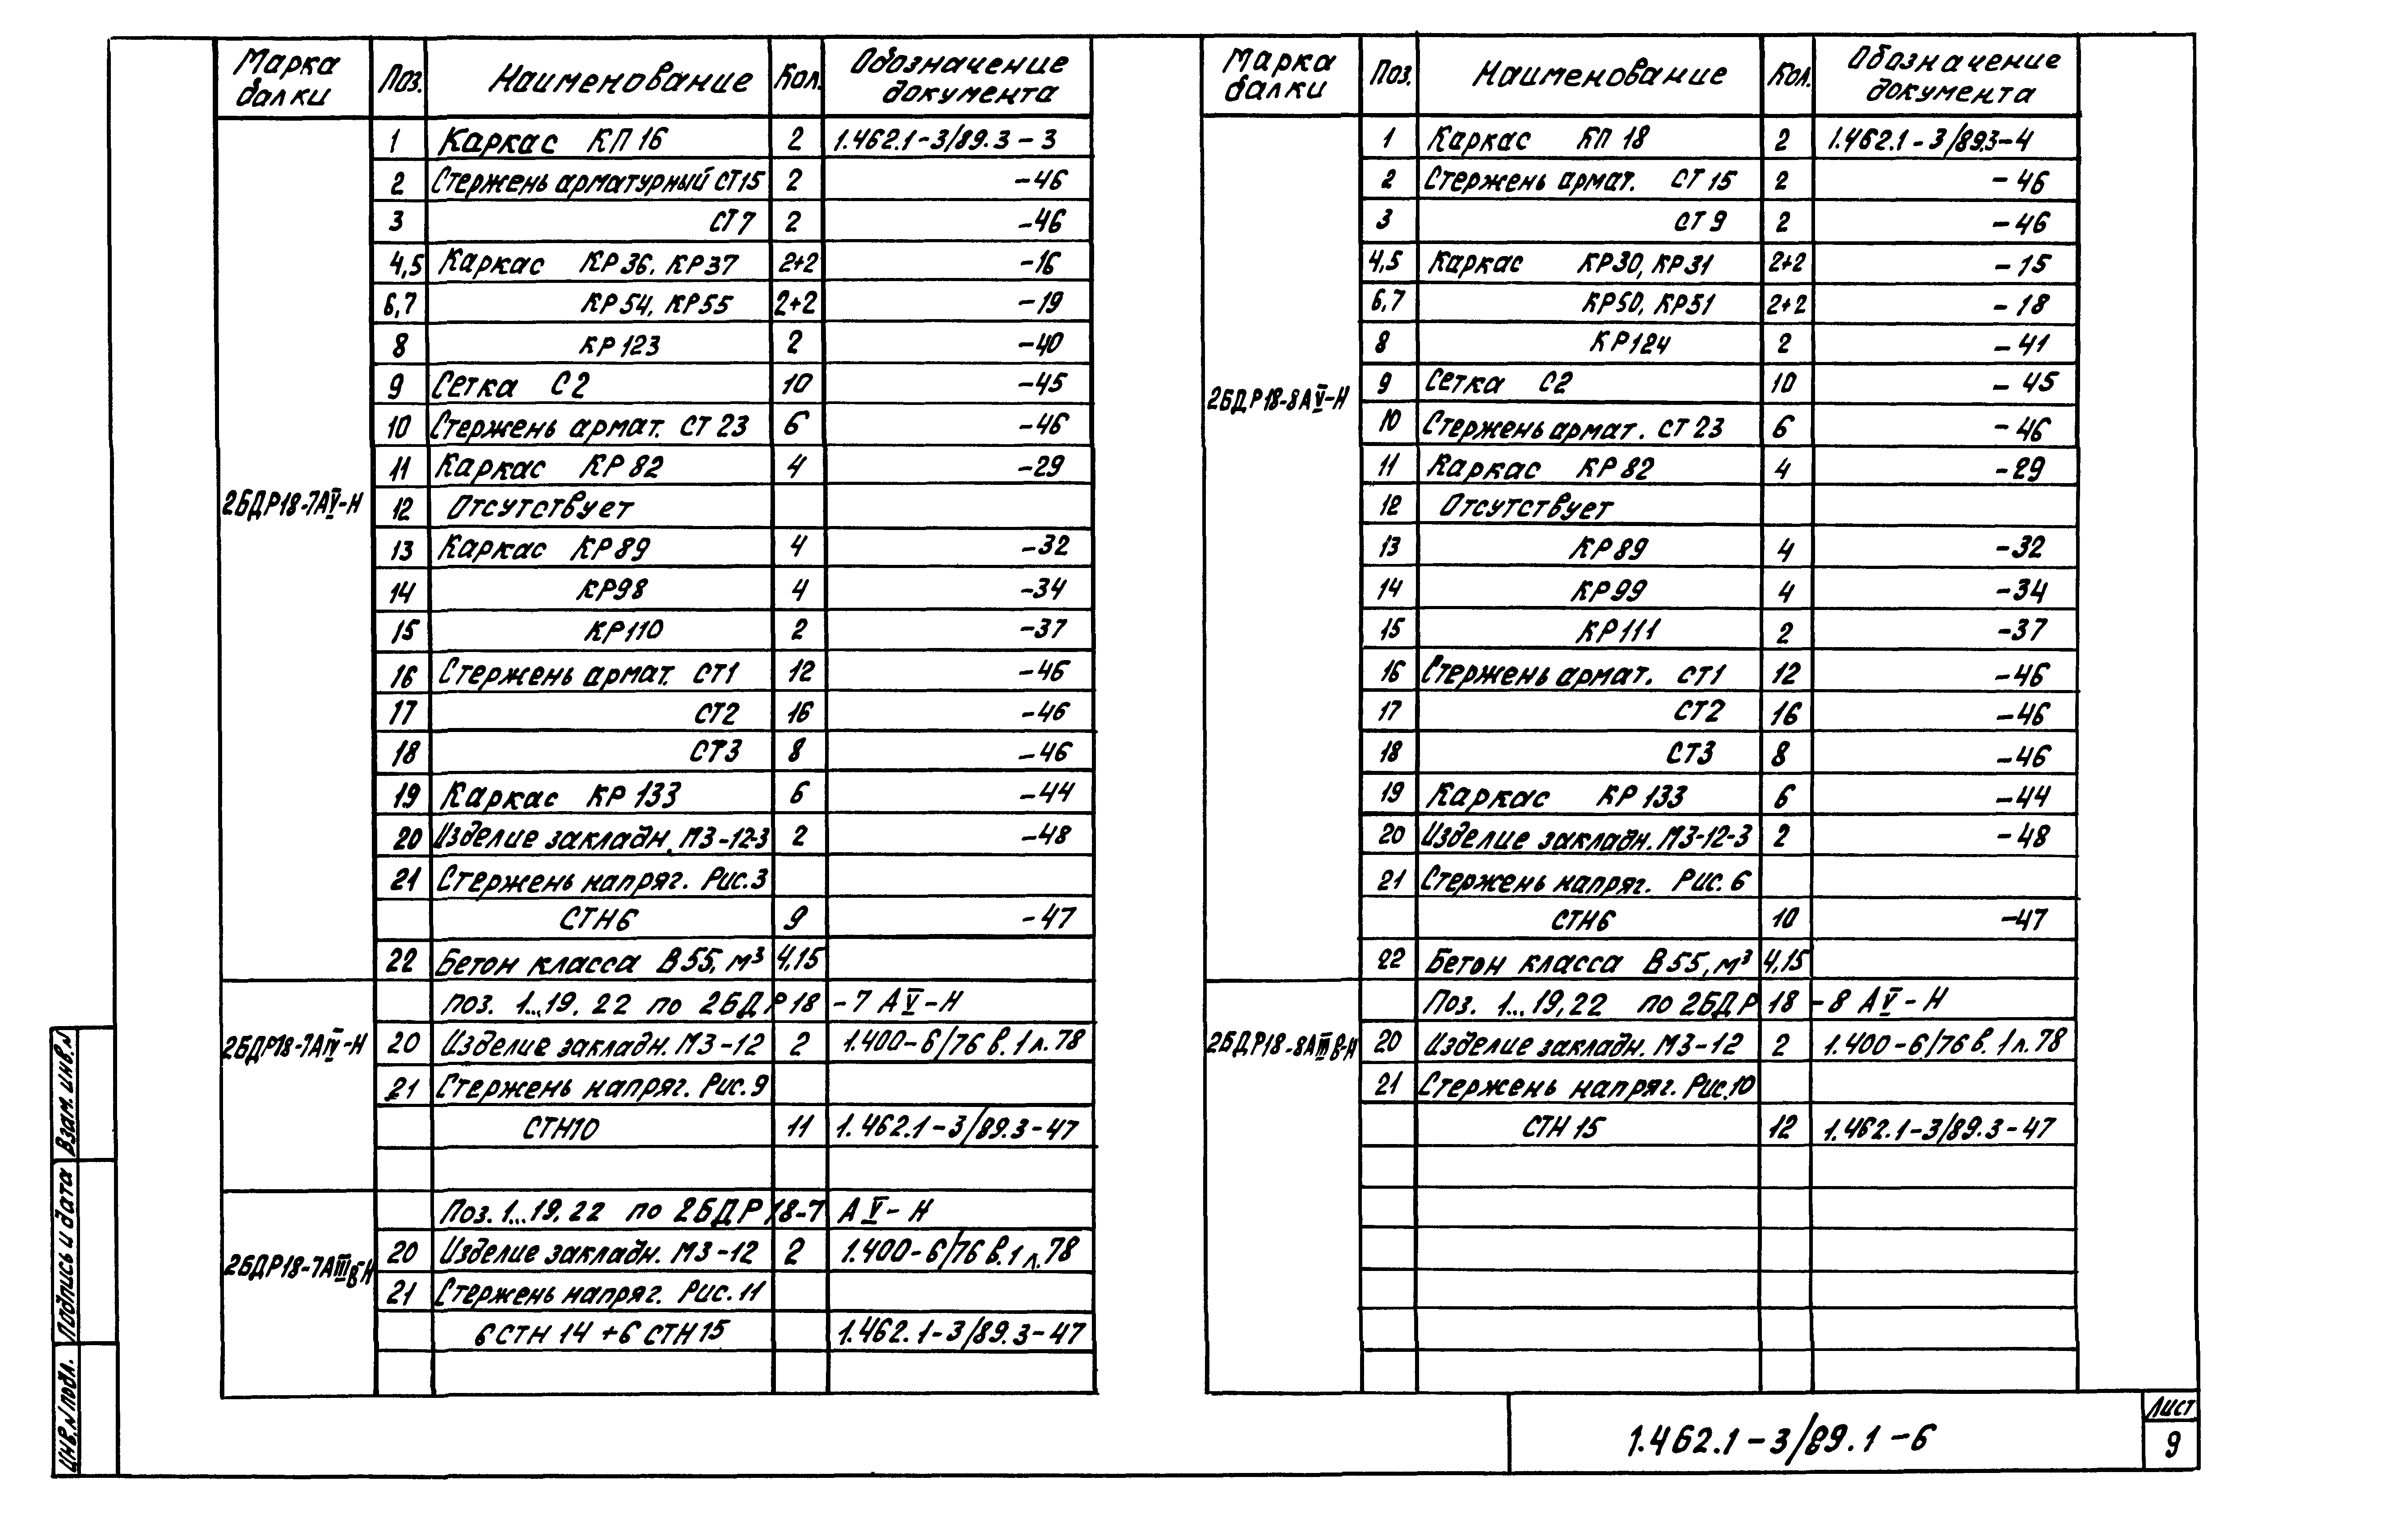 Марка балки Поз. Наименование Кол. Обозначение документа
2БДР18-7АV-Н
1 Каркас КП 16 2 1.462.1-3/89.3-3
2 Стержень арматурный СТ15 2 -46
3 СТ7 2 -46
4,5 Каркас КР36, КР37 2+2 -16
6,7 КР54, КР55 2+2 -19
8 КР123 2 -40
9 Сетка С2 10 -45
10 Стержень армат. СТ 23 6 -46
11 Каркас КР 82 4 -29
12 Отсутствует
13 Каркас КР89 4 -32
14 КР98 4 -34
15 КР110 2 -37
16 Стержень армат. СТ1 12 -46
17 СТ2 16 -46
18 СТ3 8 -46
19 Каркас КР 133 6 -44
20 Изделие закладн. МЗ-12-3 2 -48
21 Стержень напряг. Рис.3
СТН6 9 -47
22 Бетон класса В55, м³ 4,15
2БДР18-7АIV-Н
поз. 1...19, 22 по 2БДР18-7 АV-Н
20 Изделие закладн. МЗ-12 2 1.400-6/76 в.1 л.78
21 Стержень напряг. Рис.9
СТН10 11 1.462.1-3/89.3-47
2БДР18-7АIIIв-Н
Поз. 1...19, 22 по 2БДР18-7 АV-Н
20 Изделие закладн. МЗ-12 2 1.400-6/76 в.1 л.78
21 Стержень напряг. Рис. 11
6 СТН 14 + 6 СТН 15 1.462.1-3/89.3-47
Марка балки Поз. Наименование Кол. Обозначение документа
2БДР18-8АV-Н
1 Каркас КП 18 2 1.462.1-3/89.3-4
2 Стержень армат. СТ 15 2 -46
3 СТ 9 2 -46
4,5 Каркас КР30, КР31 2+2 -15
6,7 КР50, КР51 2+2 -18
8 КР124 2 -41
9 Сетка С2 10 -45
10 Стержень армат. СТ 23 6 -46
11 Каркас КР 82 4 -29
12 Отсутствует
13 КР89 4 -32
14 КР99 4 -34
15 КР111 2 -37
16 Стержень армат. СТ1 12 -46
17 СТ2 16 -46
18 СТ3 8 -46
19 Каркас КР 133 6 -44
20 Изделие закладн. МЗ-12-3 2 -48
21 Стержень напряг. Рис. 6
СТН6 10 -47
22 Бетон класса В55, м³ 4,15
2БДР18-8АIIIв-Н
Поз. 1...19, 22 по 2БДР18-8 АV-Н
20 Изделие закладн. МЗ-12 2 1.400-6/76 в.1 л.78
21 Стержень напряг. Рис.10
СТН 15 12 1.462.1-3/89.3-47
Взам. инв. №
Подпись и дата
Инв. № подл.
1.462.1-3/89.1-6
Лист
9